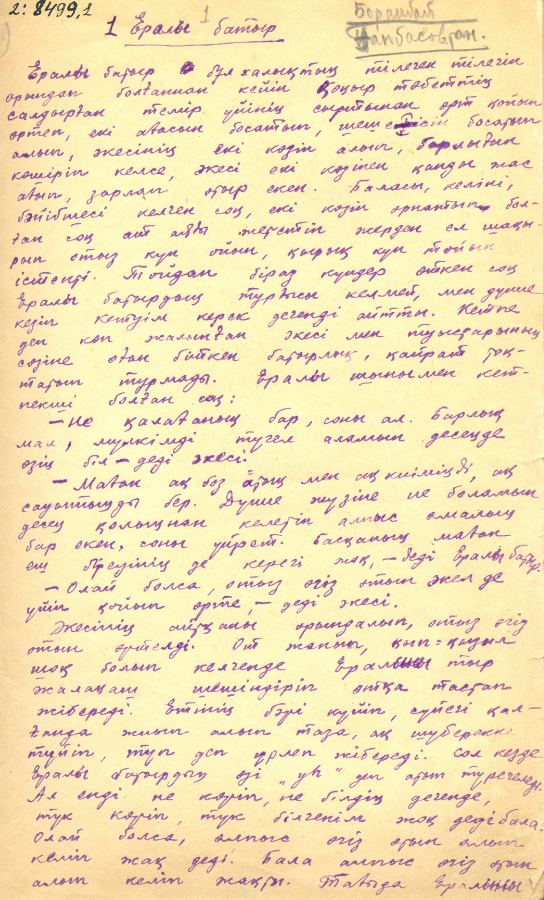 2: 8499,1
1
Баранбай
1 Ералы батыр
Ералы батыр бұл халықтың тілеген тілегін
орындап болғаннан кейін қоңыр төбеттің
салдырған темір үйінің сыртынан өрт қойып
өртеп, екі ағасын босатып, шешесін босатып
алып, әкесінің екі көзін алып, барлығын
көшіріп келсе, әкесі екі көзінен қанды жас
ағып, зарлап отыр екен. Баласы, келіні,
бәйбішесі келген соң, екі көзін орнатып бол-
ған соң ат жететін жерден ел шақы-
рып отыз күн ойын, қырық күн тойын
істепті. Тойдан біраз күндер өткен соң
Ералы батырдың тұрғысы келмей, мен дүние
кезіп кетуім керек дегенді айтты. Кетпе
деп көп жалынған әкесі мен туыстарының
сөзіне оған біткен батырлық, қайрат тоқ-
татып тұрмады. Ералы шынымен кет-
пекші болған соң:
— Не қалағаның бар, соны ал. Барлық
мал, мүлкімді түгел аламын десеңде
өзің біл — деді әкесі.
— Маған ақ боз атың мен ақ киіміңді, ақ
сауытыңды бер. Дүние жүзіне не боламын
десең қолыңнан келетін алпыс амалың
бар екен, соны үйрет. Басқаның маған
еш біреуінің де керегі жоқ, — деді Ералы батыр.
— Олай болса, отыз өгіз отын әкел де
үйіп қойып өрте, — деді әкесі.
Әкесінің айтқаны орындалып, отыз өгіз
отын өртелді. От жанып, қып-қызыл
шоқ болып келгенде Ералыны тыр
жалаңаш шешіндіріп отқа тастап
жібереді. Етінің бәрі күйіп, сүйегі қал-
ғанда жиып алып таза, ақ шүберекке
түйіп, түп деп үрлеп жібереді. Сол кезде
Ералы батырдың өзі „уһ" деп атып түрегеледі.
Ал енді не көріп, не білдің дегенде,
түк көріп, түк білгенім жоқ деді бала.
Олай болса, алпыс өгіз отын алып
келіп жақ деді. Бала алпыс өгіз отын
алып келіп жақты. Тағыда Ералыны